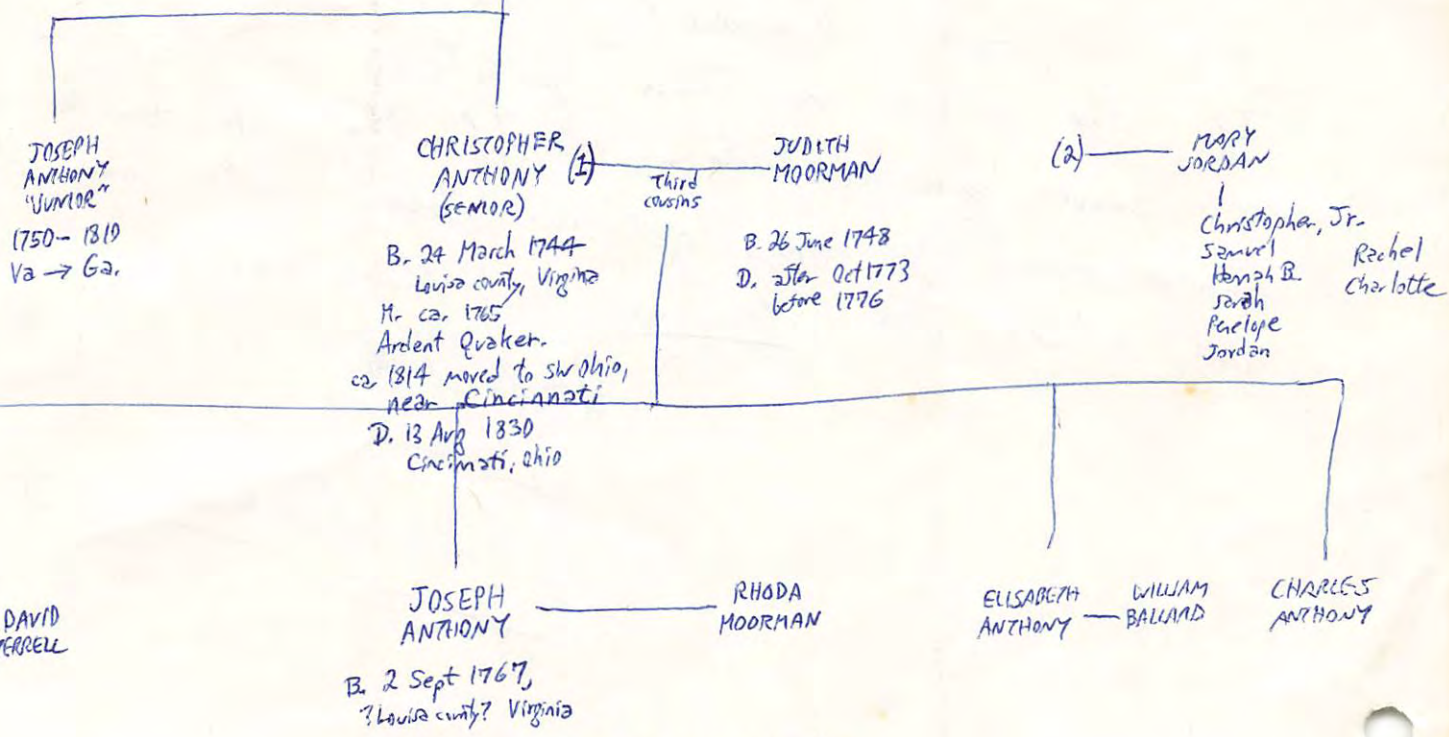 JOSEPH
ANTHONY
"JUNIOR"
1750-1810
Va → Ga.
CHRISTOPHER
ANTHONY (1)
(SENIOR)
B. 24 March 1744
Louisa county, Virginia
M. ca. 1765
Ardent Quaker.
ca 1814 moved to sw Ohio,
near Cincinnati
D. 13 Aug 1830
Cincinnati, Ohio
Third
cousins
JUDITH
MOORMAN
B. 26 June 1748
D. after Oct 1773
before 1776
(2)
MARY
JORDAN
Christopher, Jr.
Samuel
Hannah B.
Sarah
Penelope
Jordan
Rachel
Charlotte
DAVID
JOSEPH
ANTHONY
B. 2 Sept 1767,
? Louisa county? Virginia
RHODA
MOORMAN
ELISABETH
ANTHONY
WILLIAM
BALLARD
CHARLES
ANTHONY